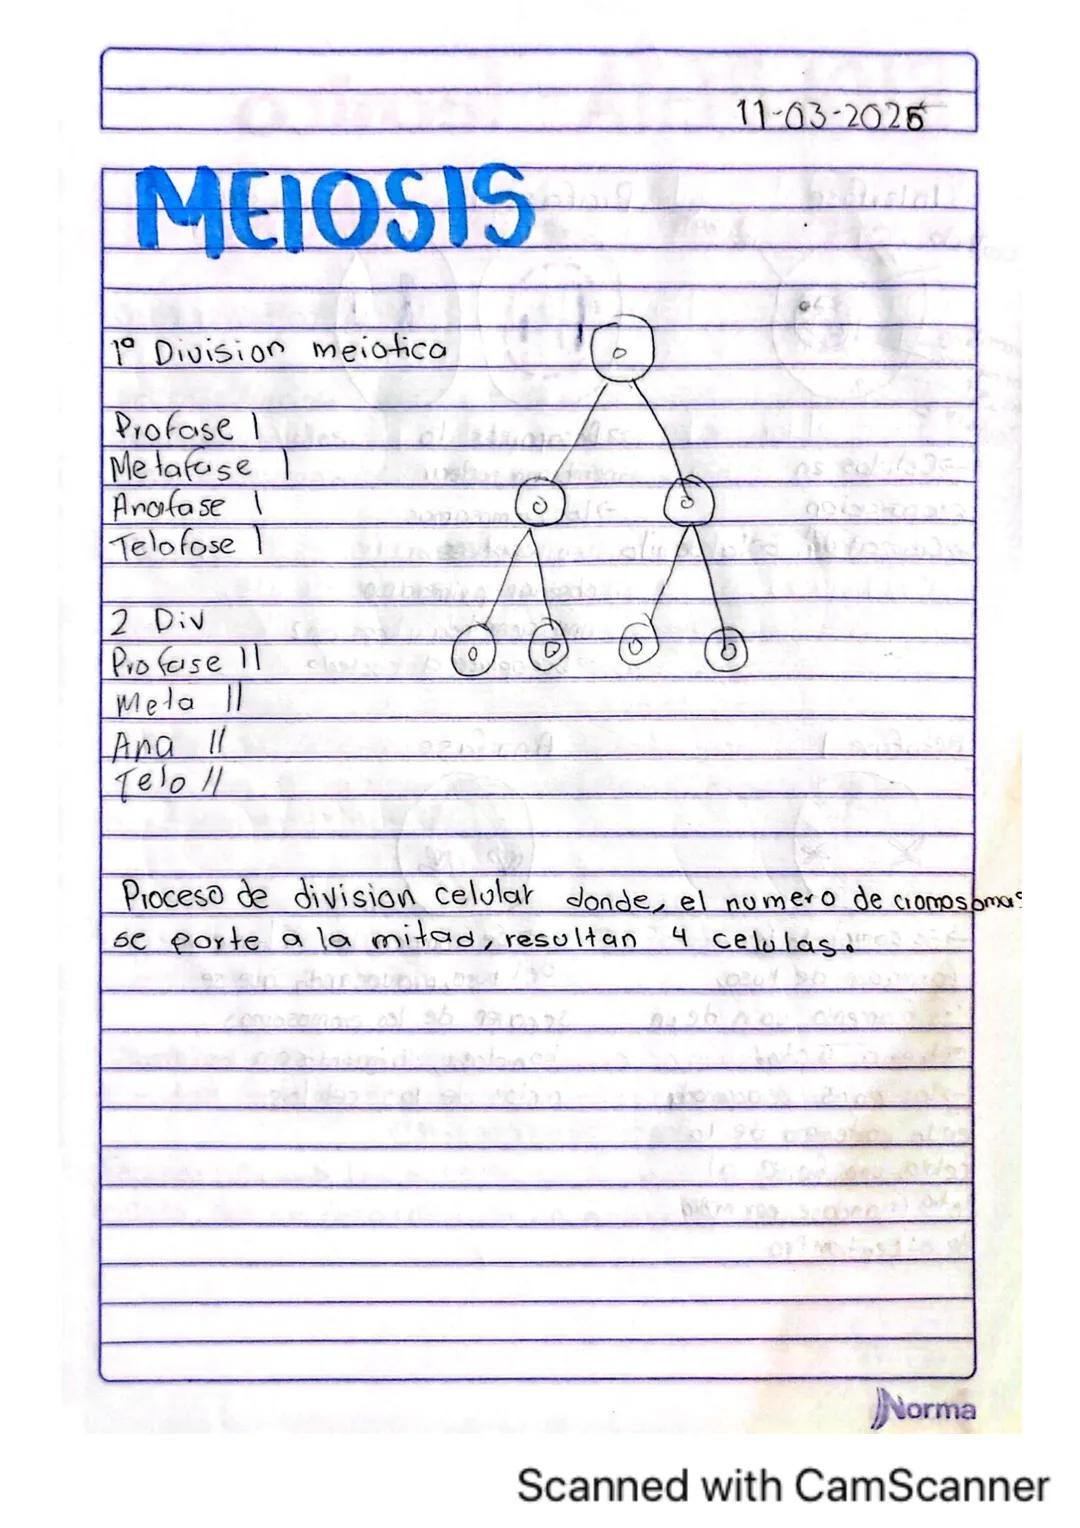 11-03-2025
MEIOSIS
1º Division meiotica
Profase I
Metafase I
Anafase I
Telofase I
2 Div
Profase II
Meta II
Ana II
Telo II
Proceso de division celular donde, el numero de cromosomas
se parte a la mitad, resultan 4 celulas.
Norma
Scanned with CamScanner